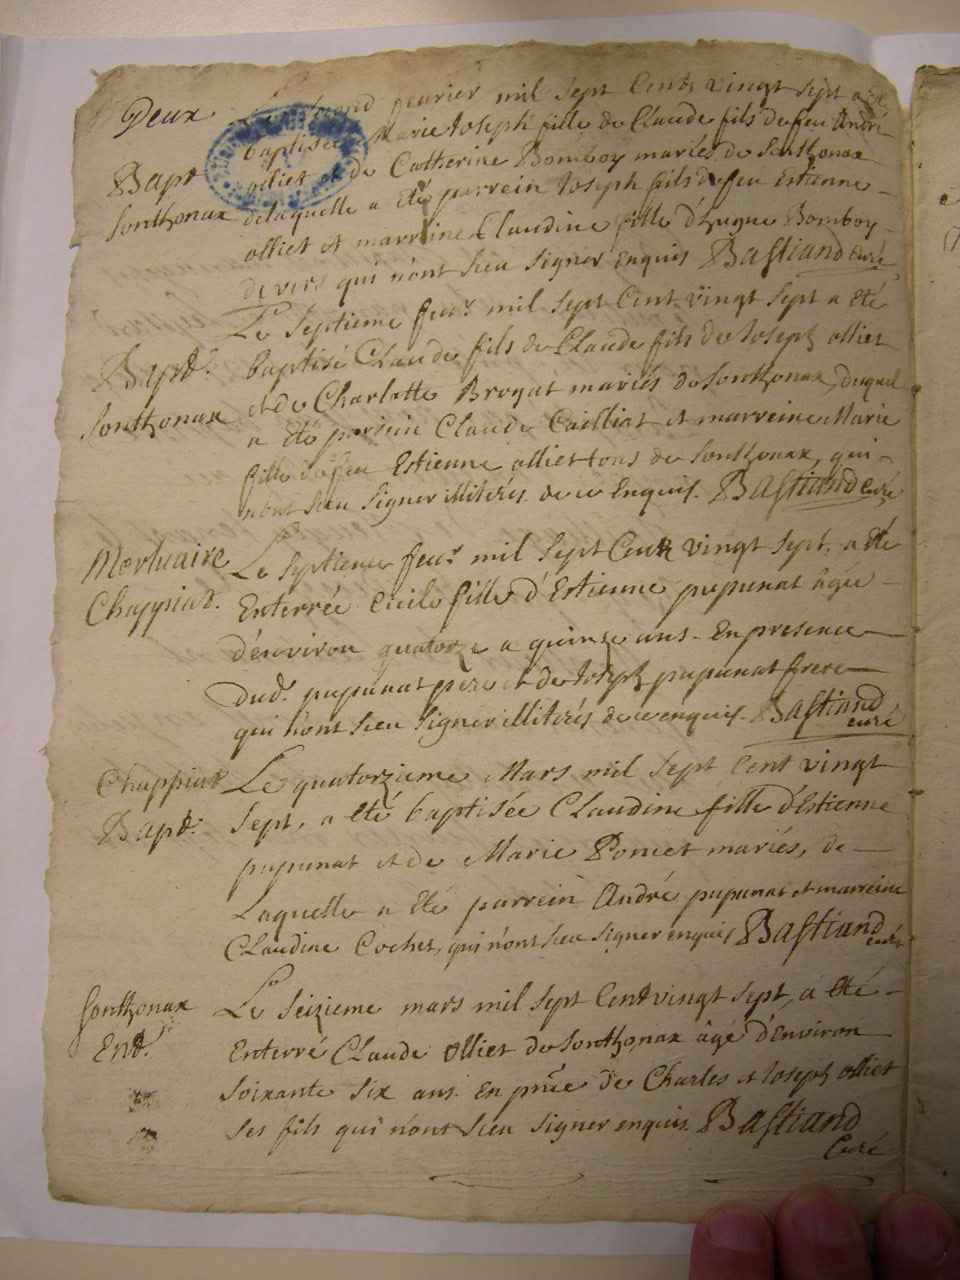 Deux
Bapt
Sonthonax
Le second feurier mil sept Cents vingt sept a été
baptisée Marie Joseph fille de Claude fils de feu André
olliet et de Catherine Bomboy mariés de Sonthonax
delaquelle a été parrein Joseph fils de feu Estienne
olliet et marreine Claudine fille d'hugue Bomboy
de vers qui n'ont sceu signer enquis Bastiand curé
Bapt.
Sonthonax
Le septieme feur. mil sept Cent vingt sept a été
baptisé Claude fils de Claude fils de Joseph olliet
et de Charlotte Brogat mariés de Sonthonax, duquel
a été parrein Claude Cailliat et marreine Marie
fille de feu Estienne olliet tous de Sonthonax, qui
n'ont sceu signer illitérés de ce Enquis. Bastiand curé
Mortuaire
Chappiat.
Le septieme feur. mil sept Cent vingt sept, a été
Enterrée Cicile fille d'Estienne pupunat âgée
d'environ quatorze a quinze ans. En presence
dud. pupunat pere et de Joseph pupunat frere
qui n'ont sceu signer illitérés de ce enquis. Bastiand
curé
Chappiat
Bapt.
Le quatorzieme Mars mil sept Cent vingt
sept, a été baptisée Claudine fille d'Estienne
pupunat et de Marie Poncet mariés, de
Laquelle a été parrein André pupunat et marreine
Claudine Cochet, qui n'ont sceu signer enquis Bastiand
curé
Sonthonax
Ent.
Le seizieme mars mil sept Cent vingt sept, a été
Enterré Claude olliet de Sonthonax âgé d'Environ
soixante six ans. En pñce de Charles et Joseph olliet
ses fils qui n'ont sceu signer enquis. Bastiand
Curé